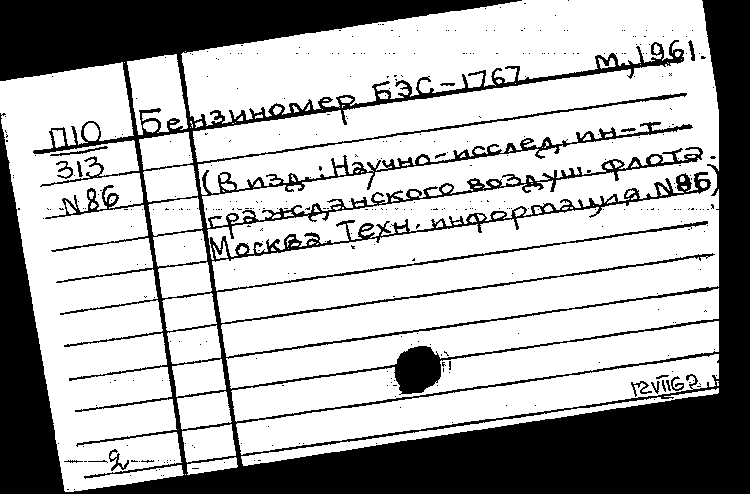 П10
313
N86
Бензиномер БЭС-1767. М., 1961.
(В изд.: Научно-исслед. ин-т
гражданского воздуш. флота.
Москва. Техн. информация. N86)
12VII62
2